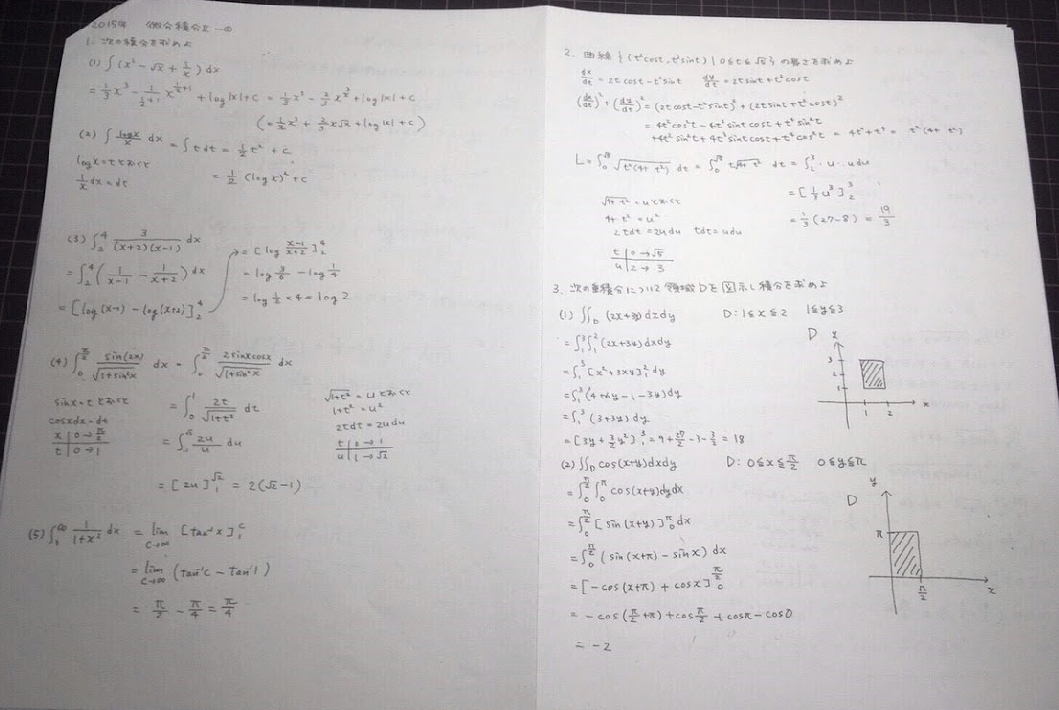 2015年 微分積分2 ー①
1. 次の積分を求めよ
(1) ∫(x² - √x + 1/x) dx
= 1/3 x³ - 1/(1/2+1) x^(1/2+1) + log|x| + c = 1/3 x³ - 2/3 x^(3/2) + log|x| + c
(= 1/3 x³ + 2/3 x√x + log|x| + c)
(2) ∫ logx/x dx = ∫ t dt = 1/2 t² + c
logx = t とおいて
1/x dx = dt = 1/2 (log x)² + c
(3) ∫₂⁴ 3/((x+2)(x-1)) dx
= ∫₂⁴ (1/(x-1) - 1/(x+2)) dx
= [log(x-1) - log(x+2)]₂⁴
= [log (x-1)/(x+2)]₂⁴
= log 3/6 - log 1/4
= log 1/2 × 4 = log 2
(4) ∫₀^(π/2) sin(2x)/√(1+sin²x) dx = ∫₀^(π/2) 2sinxcosx/√(1+sin²x) dx
sinx = t とおいて
cosxdx = dt
x | 0 → π/2
t | 0 → 1
= ∫₀¹ 2t/√(1+t²) dt
= ∫₁^√2 2u/u du
= [2u]₁^√2 = 2(√2 - 1)
√(1+t²) = u とおいて
1+t² = u²
2tdt = 2udu
t | 0 → 1
u | 1 → √2
(5) ∫₁^∞ 1/(1+x²) dx = lim c→∞ [tan⁻¹x]₁^c
= lim c→∞ (tan⁻¹c - tan⁻¹1)
= π/2 - π/4 = π/4
2. 曲線 {(t²cost, t²sint) | 0≦t≦√5} の長さを求めよ
dx/dt = 2t cost - t²sint dy/dt = 2tsint + t²cost
(dx/dt)² + (dy/dt)² = (2tcost - t²sint)² + (2tsint + t²cost)²
= 4t²cos²t - 4t³sint cost + t⁴sin²t
+4t²sin²t + 4t³sintcost + t⁴cos²t = 4t² + t⁴ = t²(4+t²)
L = ∫₀^√5 √(t²(4+t²)) dt = ∫₀^√5 t√(4+t²) dt = ∫₂³ u・udu
= [1/3 u³]₂³
= 1/3 (27-8) = 19/3
√(4+t²) = u とおいて
4+t² = u²
2tdt = 2udu tdt = udu
t | 0 → √5
u | 2 → 3
3. 次の重積分について領域Dを図示し積分を求めよ
(1) ∬D (2x+3y) dxdy D: 1≦x≦2 1≦y≦3
= ∫₁³∫₁² (2x+3y) dxdy
= ∫₁³ [x² + 3xy]₁² dy
= ∫₁³ (4+6y-1-3y) dy
= ∫₁³ (3+3y) dy
= [3y + 3/2 y²]₁³ = 9 + 27/2 - 3 - 3/2 = 18
D y
3
2
1
1 2 x
(2) ∬D cos(x+y) dxdy D: 0≦x≦π/2 0≦y≦π
= ∫₀^(π/2) ∫₀^π cos(x+y) dydx
= ∫₀^(π/2) [sin(x+y)]₀^π dx
= ∫₀^(π/2) (sin(x+π) - sinx) dx
= [-cos(x+π) + cosx]₀^(π/2)
= -cos(π/2+π) + cos π/2 + cosπ - cos0
= -2
D y
π
π/2 x